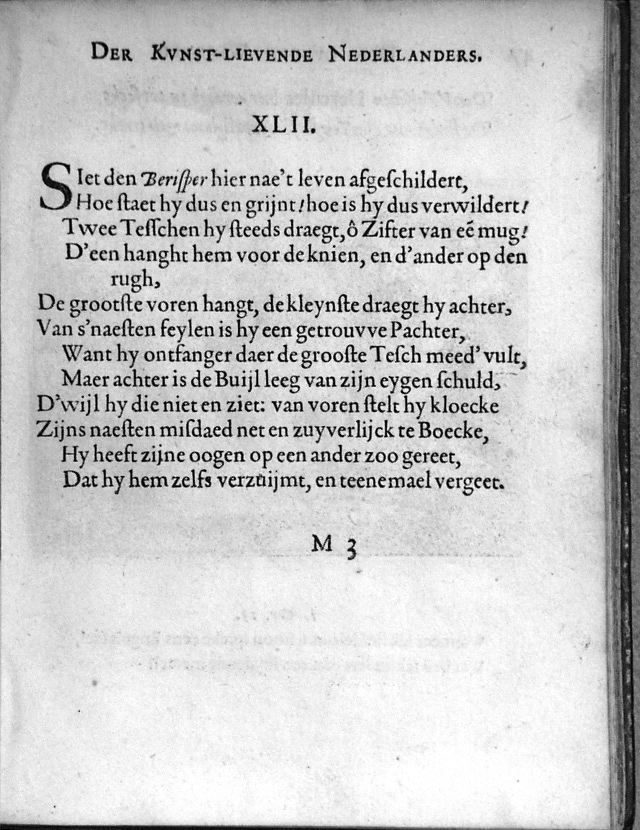 DER KVNST-LIEVENDE NEDERLANDERS.
XLII.
SIet den Berisper hier nae't leven afgeschildert,
Hoe staet hy dus en grijnt! hoe is hy dus verwildert!
Twee Tesschen hy steeds draegt, ô Zifter van eẽ mug!
D'een hanght hem voor de knien, en d'ander op den
rugh,
De grootste voren hangt, de kleynste draegt hy achter,
Van s'naesten feylen is hy een getrouvve Pachter,
Want hy ontfanger daer de grooste Tesch meed' vult,
Maer achter is de Buijl leeg van zijn eygen schuld,
D'wijl hy die niet en ziet: van voren stelt hy kloecke
Zijns naesten misdaed net en zuyverlijck te Boecke,
Hy heeft zijne oogen op een ander zoo gereet,
Dat hy hem zelfs verzuijmt, en teenemael vergeet.
M 3